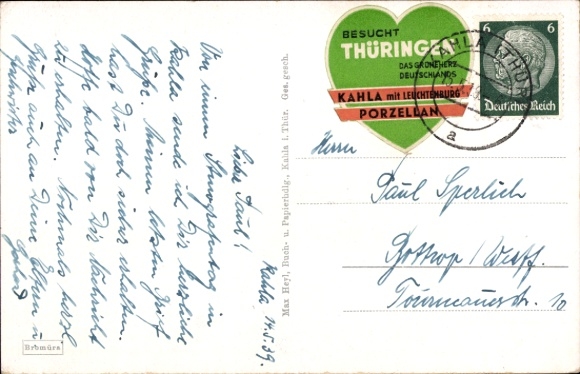 BESUCHT
THÜRINGEN
DAS GRÜNE HERZ
DEUTSCHLANDS
KAHLA mit LEUCHTENBURG
PORZELLAN
6 6
Deutsches Reich
KAHLA (THÜR)
a
Herrn
Paul Sperlich
Bottrop / Westf.
str. 10
Max Heyl, Buch- u. Papierhdlg., Kahla i. Thür. Ges. gesch.
Kahla, 14.5.39.
Lieber Paul!
Von einem in
Kahla sende ich Dir herzliche
Grüße. Meinen letzten Brief
hast Du doch sicher erhalten.
Hoffe bald von Dir Nachricht
zu erhalten. Nochmals herzl.
Grüße auch an Deine Eltern u.
Bromüra